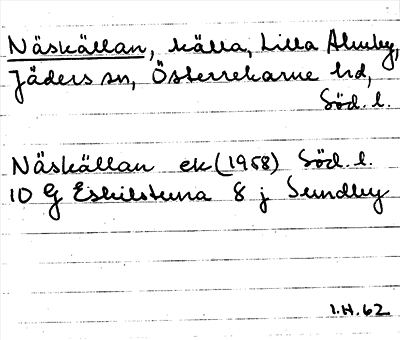 Näskällan, källa, Lilla Almby,
Jäders sn, Österrekarne hd,
Söd. l.
Näskällan ek (1958) Söd. l.
10 G Eskilstuna 8 j Sundby
I.H.62